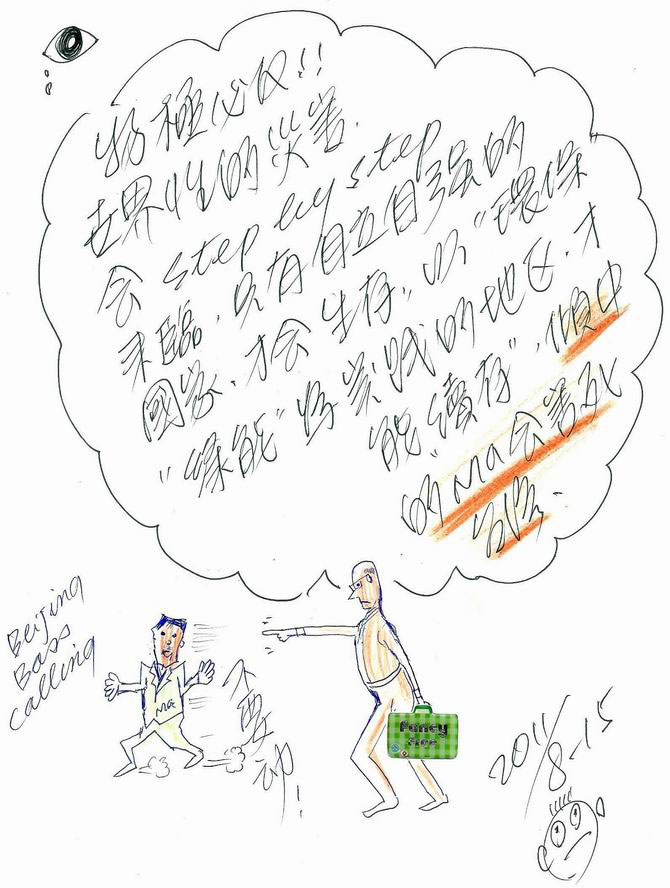 物極必反!!
世界性的災害.
会 step by step
來臨. 只有自立自强的
國家. 才会生存". 以"環保
"緑能"為業践的地区. 才
能"續存". 傾中
的 Ma 会害死
台湾.
Beijing
Boss
calling
MA
不要动!
Fancy
2011/8-15